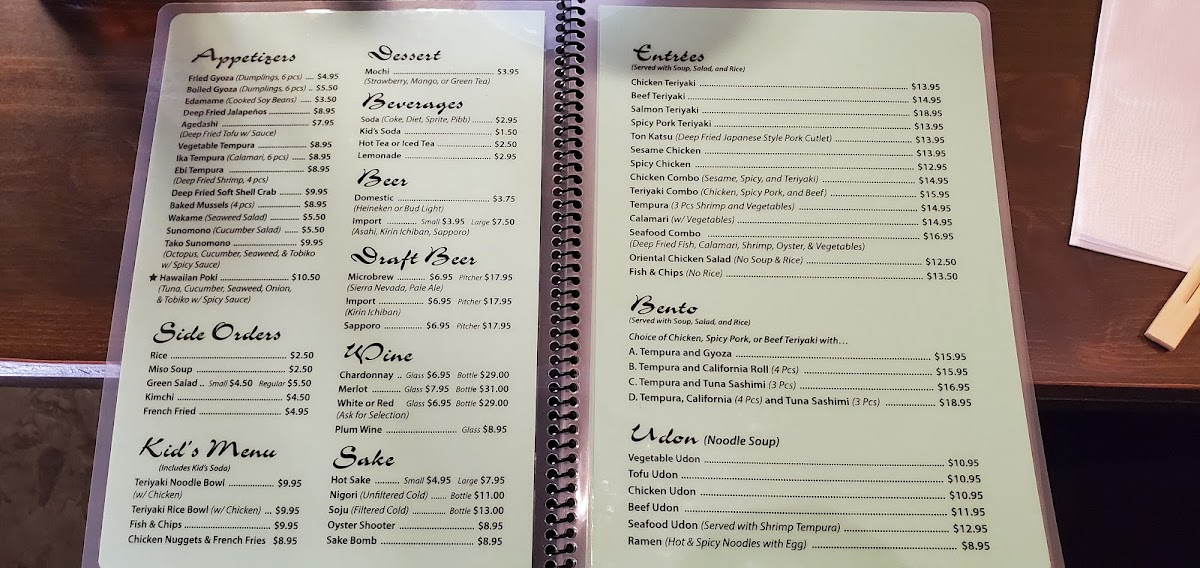 Appetizers
Fried Gyoza (Dumplings, 6 pcs) .... $4.95
Boiled Gyoza (Dumplings, 6 pcs) .. $5.50
Edamame (Cooked Soy Beans) ..... $3.50
Deep Fried Jalapeños ............... $8.95
Agedashi ................................ $7.95
(Deep Fried Tofu w/ Sauce)
Vegetable Tempura .................. $8.95
Ika Tempura (Calamari, 6 pcs) ..... $8.95
Ebi Tempura ........................... $8.95
(Deep Fried Shrimp, 4 pcs)
Deep Fried Soft Shell Crab ........ $9.95
Baked Mussels (4 pcs) ............... $8.95
Wakame (Seaweed Salad) ........... $5.50
Sunomono (Cucumber Salad) ...... $5.50
Tako Sunomono ...................... $9.95
(Octopus, Cucumber, Seaweed, & Tobiko
w/ Spicy Sauce)
★ Hawaiian Poki ........................ $10.50
(Tuna, Cucumber, Seaweed, Onion,
& Tobiko w/ Spicy Sauce)
Side Orders
Rice ....................................... $2.50
Miso Soup .............................. $2.50
Green Salad .. Small $4.50 Regular $5.50
Kimchi ................................... $4.50
French Fried ........................... $4.95
Kid's Menu
(Includes Kid's Soda)
Teriyaki Noodle Bowl ............... $9.95
(w/ Chicken)
Teriyaki Rice Bowl (w/ Chicken) ... $9.95
Fish & Chips ........................... $9.95
Chicken Nuggets & French Fries $8.95
Dessert
Mochi .................................... $3.95
(Strawberry, Mango, or Green Tea)
Beverages
Soda (Coke, Diet, Sprite, Pibb) ........ $2.95
Kid's Soda .............................. $1.50
Hot Tea or Iced Tea .................. $2.50
Lemonade .............................. $2.95
Beer
Domestic ............................... $3.75
(Heineken or Bud Light)
Import .......... Small $3.95 Large $7.50
(Asahi, Kirin Ichiban, Sapporo)
Draft Beer
Microbrew .......... $6.95 Pitcher $17.95
(Sierra Nevada, Pale Ale)
Import ................ $6.95 Pitcher $17.95
(Kirin Ichiban)
Sapporo .............. $6.95 Pitcher $17.95
Wine
Chardonnay .. Glass $6.95 Bottle $29.00
Merlot .......... Glass $7.95 Bottle $31.00
White or Red Glass $6.95 Bottle $29.00
(Ask for Selection)
Plum Wine ........................ Glass $8.95
Sake
Hot Sake ......... Small $4.95 Large $7.95
Nigori (Unfiltered Cold) ...... Bottle $11.00
Soju (Filtered Cold) ........... Bottle $13.00
Oyster Shooter ........................ $8.95
Sake Bomb .............................. $8.95
Entrées
(Served with Soup, Salad, and Rice)
Chicken Teriyaki ........................................ $13.95
Beef Teriyaki ........................................ $14.95
Salmon Teriyaki ........................................ $18.95
Spicy Pork Teriyaki ........................................ $13.95
Ton Katsu (Deep Fried Japanese Style Pork Cutlet) .................. $13.95
Sesame Chicken ........................................ $13.95
Spicy Chicken ........................................ $12.95
Chicken Combo (Sesame, Spicy, and Teriyaki) .................. $14.95
Teriyaki Combo (Chicken, Spicy Pork, and Beef) .................. $15.95
Tempura (3 Pcs Shrimp and Vegetables) .................. $14.95
Calamari (w/ Vegetables) .................. $14.95
Seafood Combo .................. $16.95
(Deep Fried Fish, Calamari, Shrimp, Oyster, & Vegetables)
Oriental Chicken Salad (No Soup & Rice) .................. $12.50
Fish & Chips (No Rice) .................. $13.50
Bento
(Served with Soup, Salad, and Rice)
Choice of Chicken, Spicy Pork, or Beef Teriyaki with…
A. Tempura and Gyoza .................. $15.95
B. Tempura and California Roll (4 Pcs) .................. $15.95
C. Tempura and Tuna Sashimi (3 Pcs) .................. $16.95
D. Tempura, California (4 Pcs) and Tuna Sashimi (3 Pcs) .................. $18.95
Udon (Noodle Soup)
Vegetable Udon .................. $10.95
Tofu Udon .................. $10.95
Chicken Udon .................. $10.95
Beef Udon .................. $11.95
Seafood Udon (Served with Shrimp Tempura) .................. $12.95
Ramen (Hot & Spicy Noodles with Egg) .................. $8.95